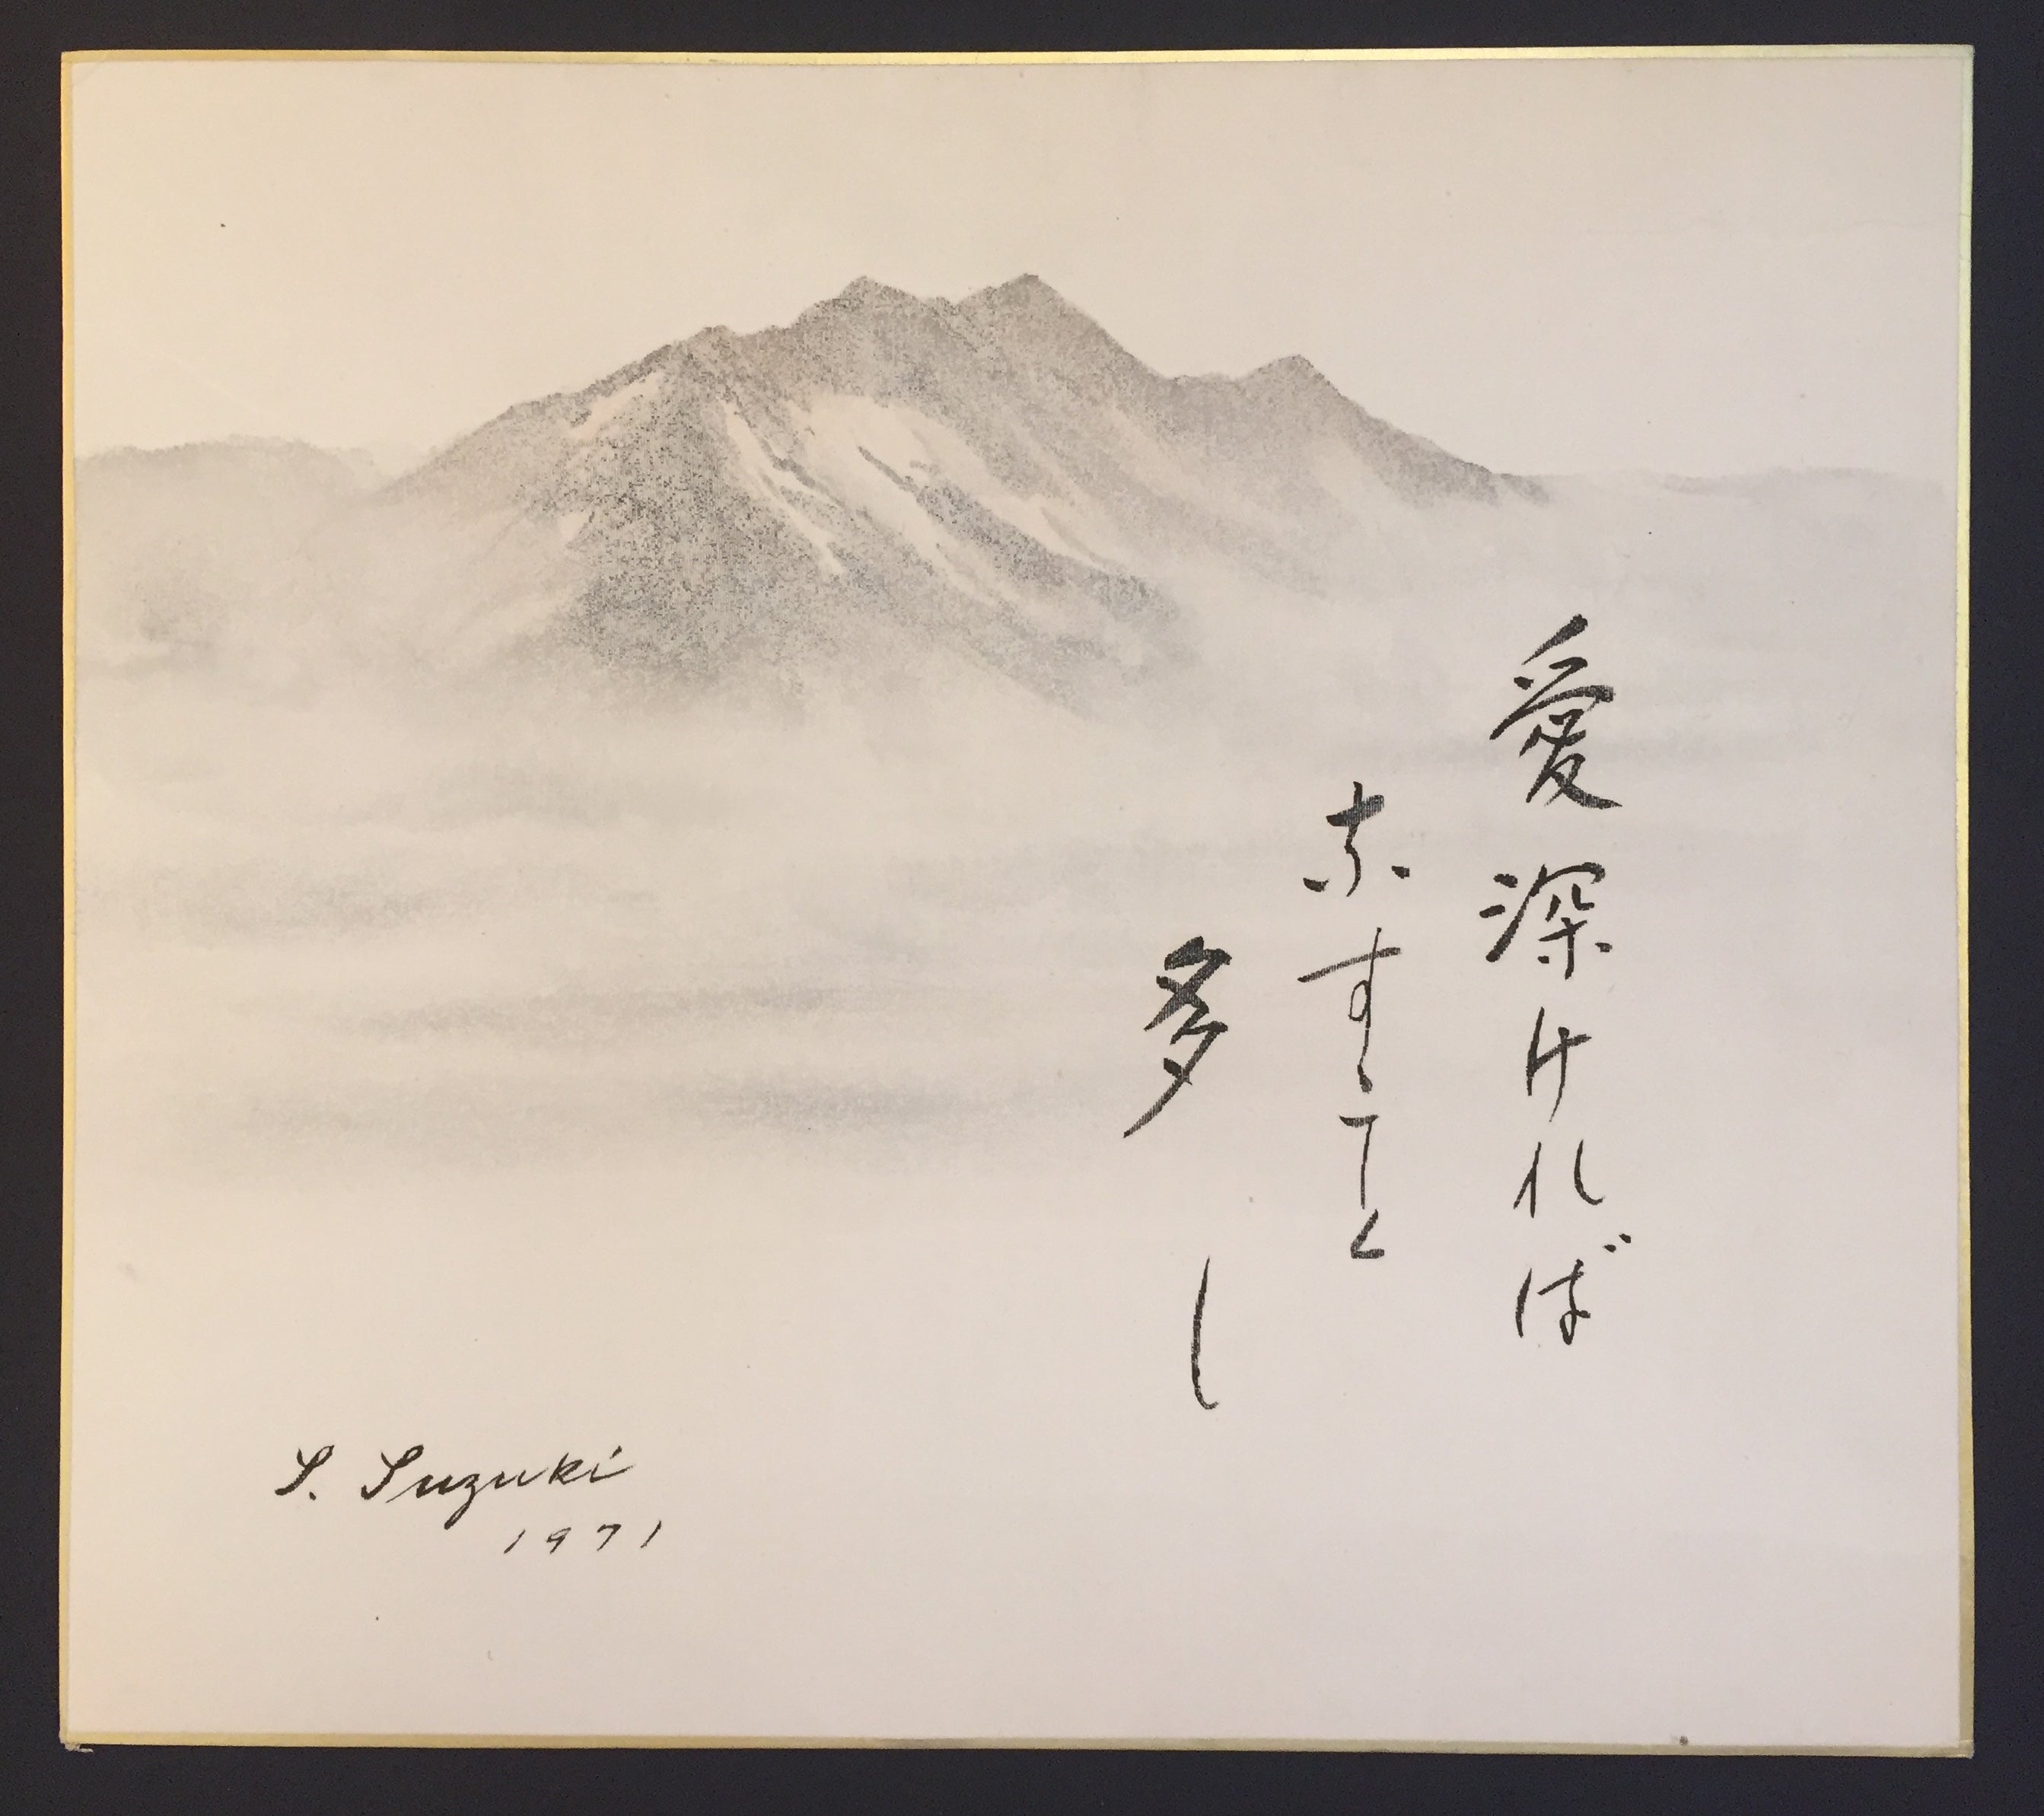 愛深ければ
なすこと
多し
S. Suzuki
1971